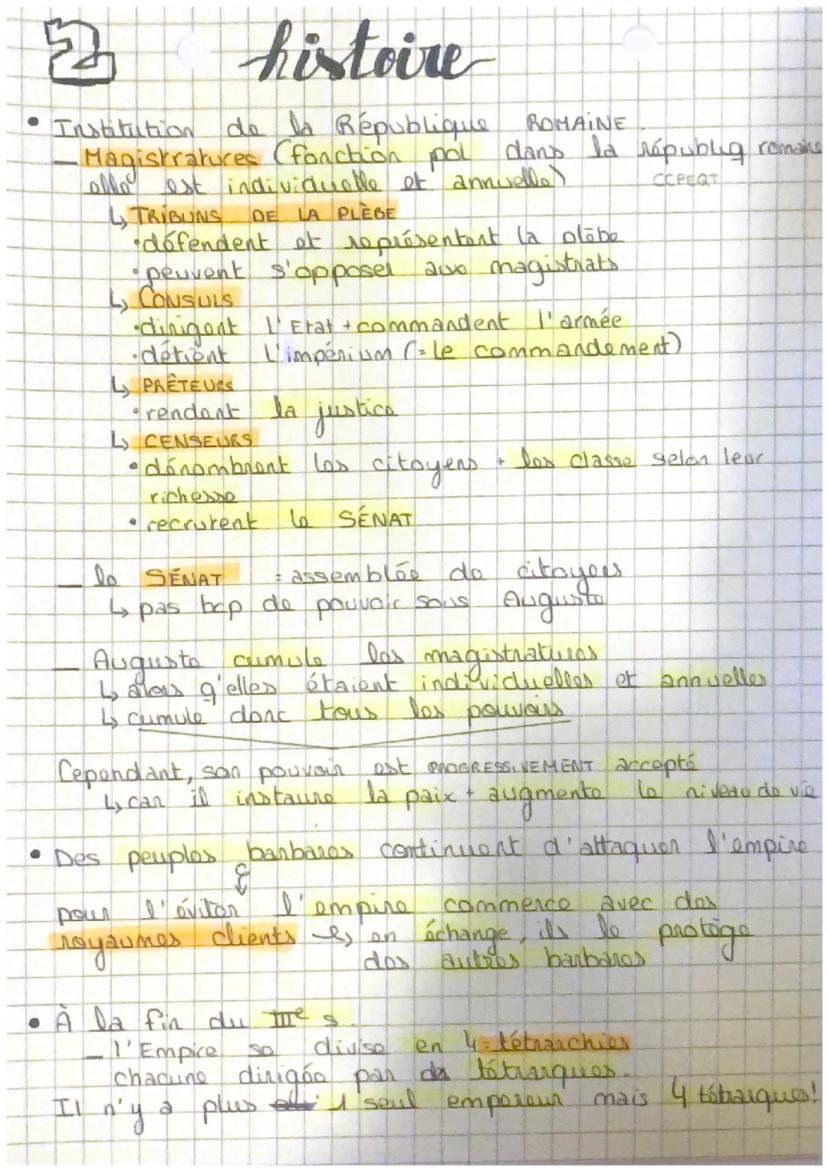 2 histoire
• Institution de la République ROMAINE.
– Magistratures (fonction pol dans la républiq romaine
elle est individuelle et annuelle) CCPEQT
↳ TRIBUNS DE LA PLÈBE
• défendent et représentent la plèbe
• peuvent s'opposer aux magistrats
↳ CONSULS
• dirigent l'Etat + commandent l'armée
• détient l'impérium (= le commandement)
↳ PRÊTEURS
• rendent la justice
↳ CENSEURS
• dénombrent les citoyens + les classe selon leur
richesse
• recrutent le SÉNAT
– le SÉNAT = assemblée de citoyens
↳ pas bcp de pouvoir sous Auguste
– Auguste cumule les magistratures
↳ alors q'elles étaient individuelles et annuelles
↳ cumule donc tous les pouvoirs
Cependant, son pouvoir est PROGRESSIVEMENT accepté
↳ car il instaure la paix + augmente le niveau de vie
• Des peuples barbares continuent d'attaquer l'empire
pour l'éviter l'empire commerce avec des
royaumes clients ↳ en échange, ils le protège
des autres barbares
• À la fin du IIIe s.
– l'Empire se divise en 4 = tétrarchies
chacune dirigée par des tétrarques.
Il n'y a plus 1 seul empereur mais 4 tétrarques!